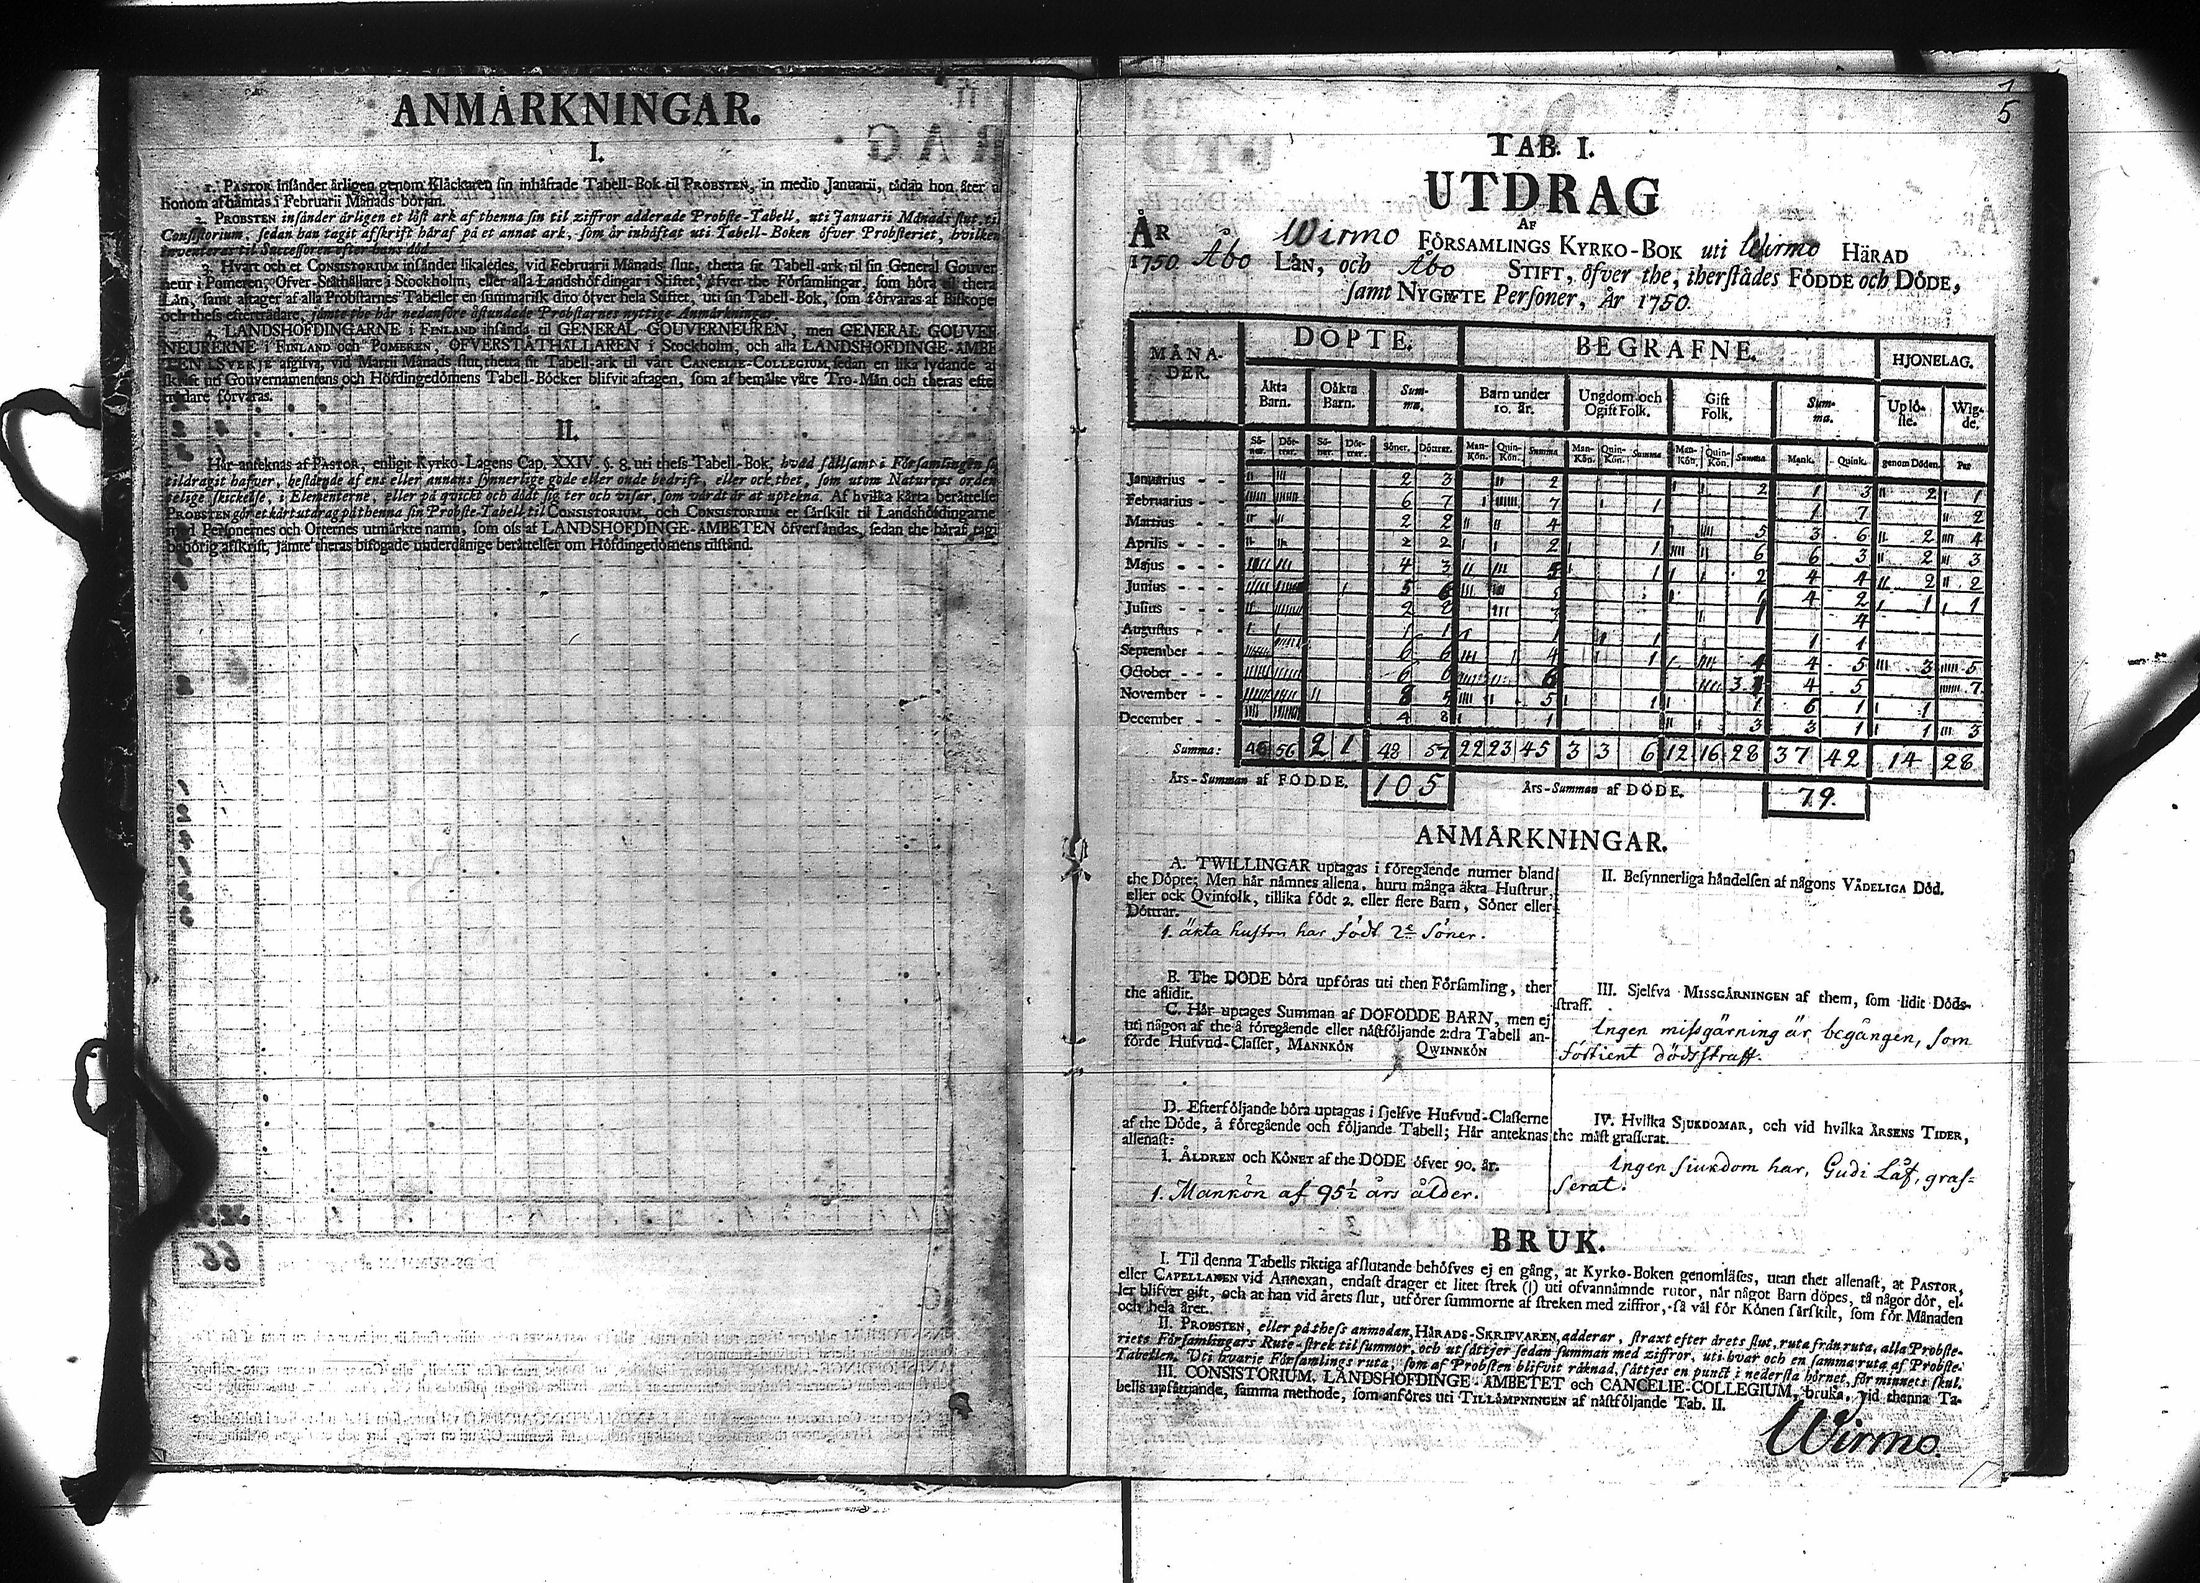 ANMÅRKNINGAR.
I.
1. PASTOR insånder årligen genom Klåckaren sin inhåftade Tabell-Bok til PROBSTEN, in medio Januarii, tådan hon åter
honom afhåmtas i Februarii Månads början.
2. PROBSTEN insånder årligen et löst ark af thenna sin til ziffror adderade Probste-Tabell, uti Januarii Månads slut, til
Consistorium, sedan han tagit afskrift håraf på et annat ark, som år inhåftat uti Tabell-Boken öfver Probsteriet, hvilken
inventeras til Successoren efter hans död.
3. Hvart och et CONSISTORIUM insånder likaledes, vid Februarii Månads slut, thetta sit Tabell-ark til sin General Gouver
neur i Pomeren, Öfver-Ståthållare i Stockholm, eller alla Landshöfdingar i Stiftet, öfver the Församlingar, som höra til thera
Lån, samt aftager af alla Probstarnes Tabeller en summarisk dito öfver hela Stiftet, uti sin Tabell-Bok, som förvaras af Biskopen
och thess eftertrådare, jämte the hår nedanföre åstundade Probstarnes nyttige Anmårkningar.
4. LANDSHÖFDINGARNE i FINLAND insånda til GENERAL-GOUVERNEUREN, men GENERAL GOUVER
NEURERNE i FINLAND och POMEREN, ÖFVERSTÅTHÅLLAREN i Stockholm, och alla LANDSHÖFDINGE-ÅMBE
TEN I SVERJE afgifva, vid Martii Månads slut, thetta sit Tabell-ark til vårt CANCELIE-COLLEGIUM, sedan en lika lydande af
skrift uti Gouvernamentens och Höfdingedömens Tabell-Böcker blifvit aftagen, som af bemålte våre Tro-Mån och theras efter
trådare förvaras.
II.
Hår anteknas af PASTOR, enligit Kyrko-Lagens Cap. XXIV. §. 8. uti thess Tabell-Bok, hvad sållsamt i Församlingen sig
tildragit hafver, bestående af ens eller annans synnerlige gode eller onde bedrift, eller ock thet, som utom Naturens orden
telige skickelse, i Elementerne, eller på quickt och dödt sig ter och visar, som vårdt år at uptekna. Af hvilka korta beråttelser
PROBSTEN gör et kårt utdrag på thenna sin Probste-Tabell til CONSISTORIUM, och CONSISTORIUM et sårskilt til Landshöfdingarne
med Personernes och Orternes utmårkte namn, som oss af LANDSHÖFDINGE-ÅMBETEN öfversåndas, sedan the håraf tagit
behörig afskrift, jåmte theras bifogade underdånige beråttelser om Höfdingedömens tilstånd.
5
TAB. I.
UTDRAG
AF
ÅR Wirmo FÖRSAMLINGS KYRKO-BOK uti Wirmo HÅRAD
1750. Åbo LÅN, och Åbo STIFT, öfver the, therstådes FÖDDE och DÖDE,
samt NYGIFTE Personer, År 1750.
MÅNA-DER. DÖPTE. BEGRAFNE. HJONELAG.
Åkta Barn. Oåkta Barn. Sum-ma. Barn under 10. år. Ungdom och Ogift Folk. Gift Folk. Sum-ma. Uplö-ste. Wig-de.
Sö-ner. Döt-trar. Sö-ner. Döt-trar. Söner. Döttrar. Man-Kön. Quin-Kön. Summa Man-Kön. Quin-Kön. Summa Man-Kön. Quin-Kön. Summa Mank. Quink. genom Döden. Par
Januarius 2 3 2 2 1 3 2 1
Februarius 6 7 7 1 1 7 2
Martius 2 2 4 5 3 6 2 4
Aprilis 2 2 2 1 6 6 3 2 3
Majus 4 3 5 1 2 4 4 2 2
Junius 5 6 5 1 4 2 1 1
Julius 2 2 3 1 4
Augustus 1 1 1 1 1 1
September 6 6 4 1 4 4 5 3 5
October 6 6 6 3 4 5 7
November 8 5 5 1 1 6 1 1
December 4 8 1 3 3 1 1 3
Summa: 46 56 2 1 48 57 22 23 45 3 3 6 12 16 28 37 42 14 28
Års-Summan af FÖDDE. 105 Års-Summan af DÖDE. 79.
ANMÅRKNINGAR.
A. TWILLINGAR uptagas i föregående numer bland
the Döpte: Men hår nåmnes allena, huru många åkta Hustrur,
eller ock Qvinfolk, tillika födt 2. eller flere Barn, Söner eller
Döttrar.
1. äkta hustru har födt 2e Söner.
B. The DÖDE böra upföras uti then Församling, ther
the aflidit.
C. Hår uptages Summan af DÖFÖDDE BARN, men ej
uti någon af the å föregående eller nåstföljande 2:dra Tabell an-
förde Hufvud-Classer, MANNKÖN QWINNKÖN
D. Efterföljande böra uptagas i sjelfve Hufvud-Classerne
af the Döde, å föregående och följande Tabell; Hår anteknas
allenast:
I. ÅLDREN och KÖNET af the DÖDE öfver 90. år.
1. Mankön af 95½ års ålder.
II. Besynnerliga håndelsen af någons VÅDELIGA Död.
III. Sjelfva MISSGÅRNINGEN af them, som lidit Döds-
straff.
Ingen missgärning är begången, som
förtient dödsstraff.
IV. Hvilka SJUKDOMAR, och vid hvilka ÅRSENS TIDER,
the måst grasserat.
Ingen siukdom har, Gudi Låf, gras=
serat.
BRUK.
I. Til denna Tabells riktiga afslutande behöfves ej en gång, at Kyrko-Boken genomläses, utan thet allenast, at PASTOR,
eller CAPELLANEN vid Annexan, endast drager et litet strek (I) uti ofvannåmnde rutor, når något Barn döpes, tå någor dör, el-
ler blifver gift, och at han vid årets slut, utförer summorne af streken med ziffror, så vål för Könen sårskilt, som för Månaden
och hela året.
II. PROBSTEN, eller på thess anmodan, HÅRADS-SKRIFVAREN, adderar, straxt efter årets slut, ruta från ruta, alla Probste-
riets Församlingars Rute-strek til summor, och utsåttjer sedan summan med ziffror, uti hvar och en samma ruta af Probste-
Tabellen. Uti hvarje Församlings ruta, som af Probsten blifvit råknad, såttjes en punct i nedersta hörnet, för minnets skul.
III. CONSISTORIUM, LANDSHÖFDINGE-ÅMBETET och CANCELIE-COLLEGIUM, bruka, vid thenna Ta-
bells upsåttjande, samma methode, som anföres uti TILLÅMPNINGEN af nåstföljande Tab. II.
Wirmo